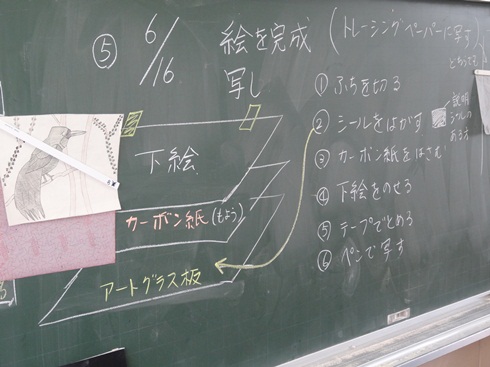 ⑤ 6/16 絵を完成(トレーシングペーパーに写す)
写し
①ふちを切る
②シールをはがす
説明
のある方
③カーボン紙をはさむ
④下絵をのせる
⑤テープでとめる
⑥ペンで写す
下絵
カーボン紙(もよう)
アートグラス板